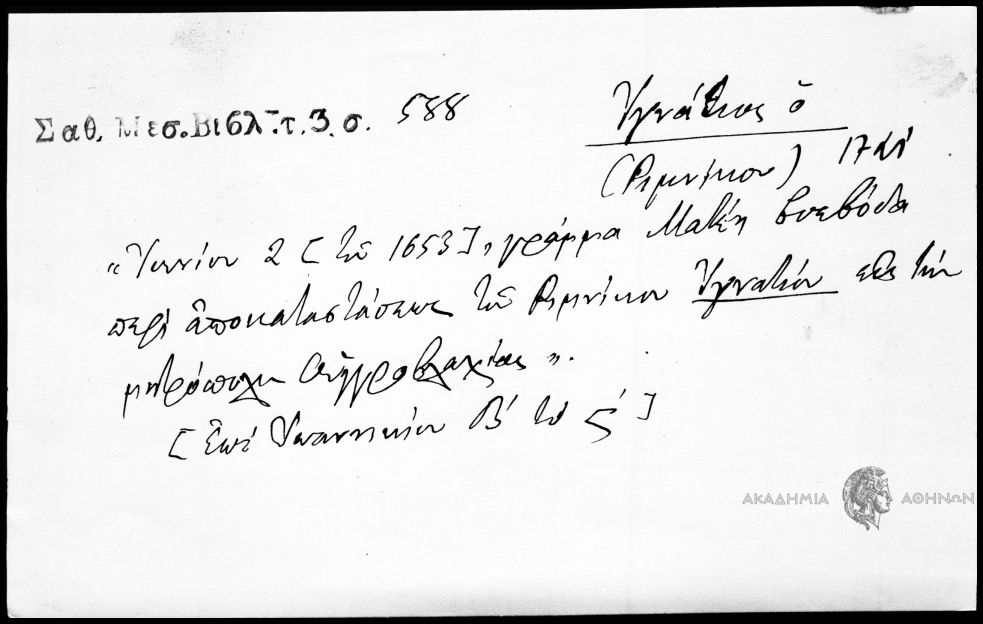 Σαθ. Μεσ. Βιβλ. τ. 3. σ. 588
Ἰγνάτιος ὁ
(Ριμνίκου) 17 αἰ
«Ἰουνίου 2 [τοῦ 1653], γράμμα Ματθ. βοεβόδα
περὶ ἀποκαταστάσεως τοῦ Ριμνίκου Ἰγνατίου εἰς τὴν
μητρόπολιν Οὐγγροβλαχίας».
[Ἐπὶ Ἰωαννικίου Β΄ τὸ ς΄]
ΑΚΑΔΗΜΙΑ ΑΘΗΝΩΝ